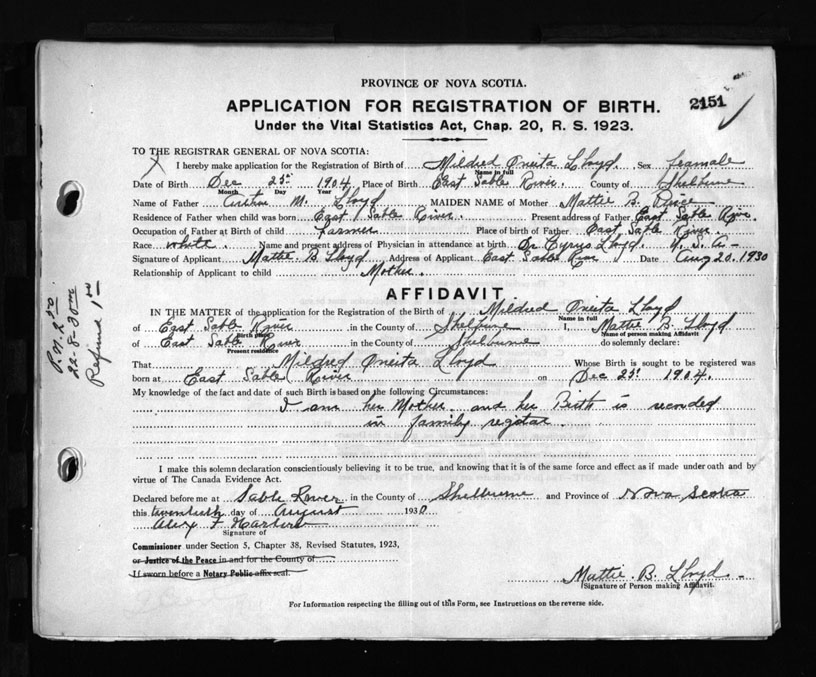 PROVINCE OF NOVA SCOTIA.
APPLICATION FOR REGISTRATION OF BIRTH.
2151
Under the Vital Statistics Act, Chap. 20, R. S. 1923.
TO THE REGISTRAR GENERAL OF NOVA SCOTIA:
I hereby make application for the Registration of Birth of Mildred Oneita Lloyd. Sex feamale
Name in full
Date of Birth Dec 25th 1904 Place of Birth East Sable River. County of Shelburne
Month Day Year
Name of Father M. Lloyd MAIDEN NAME of Mother Mattie B.
Residence of Father when child was born East Sable River. Present address of Father East Sable River.
Occupation of Father at Birth of child Farmer Place of birth of Father East Sable River.
Race white. Name and present address of Physician in attendance at birth Dr Cyrus Lloyd. U. S. A.
Signature of Applicant Mattie B. Lloyd Address of Applicant East Sable River Date Aug 20. 1930
Relationship of Applicant to child Mother.
AFFIDAVIT
IN THE MATTER of the application for the Registration of the Birth of Mildred Oneita Lloyd
Name in full
of East Sable River in the County of Shelburne I, Mattie B. Lloyd
Birth place Name of person making Affidavit
of East Sable River in the County of Shelburne do solemnly declare:
Present residence
That Mildred Oneita Lloyd Whose Birth is sought to be registered was
born at East Sable River on Dec 25th 1904.
My knowledge of the fact and date of such Birth is based on the following Circumstances:
I am her Mother and her Birth is recorded
in family registar.
I make this solemn declaration conscientiously believing it to be true, and knowing that it is of the same force and effect as if made under oath and by
virtue of The Canada Evidence Act.
Declared before me at Sable River in the County of Shelburne and Province of Nova Scotia
this twentieth day of August 1930
Alex F
Signature of
Commissioner under Section 5, Chapter 38, Revised Statutes, 1923,
or Justice of the Peace in and for the County of
If sworn before a Notary Public affix seal.
Mattie B. Lloyd
(Signature of Person making Affidavit.
For Information respecting the filling out of this Form, see Instructions on the reverse side.
P.N. 2.50
22-8-30
Refund 1.00